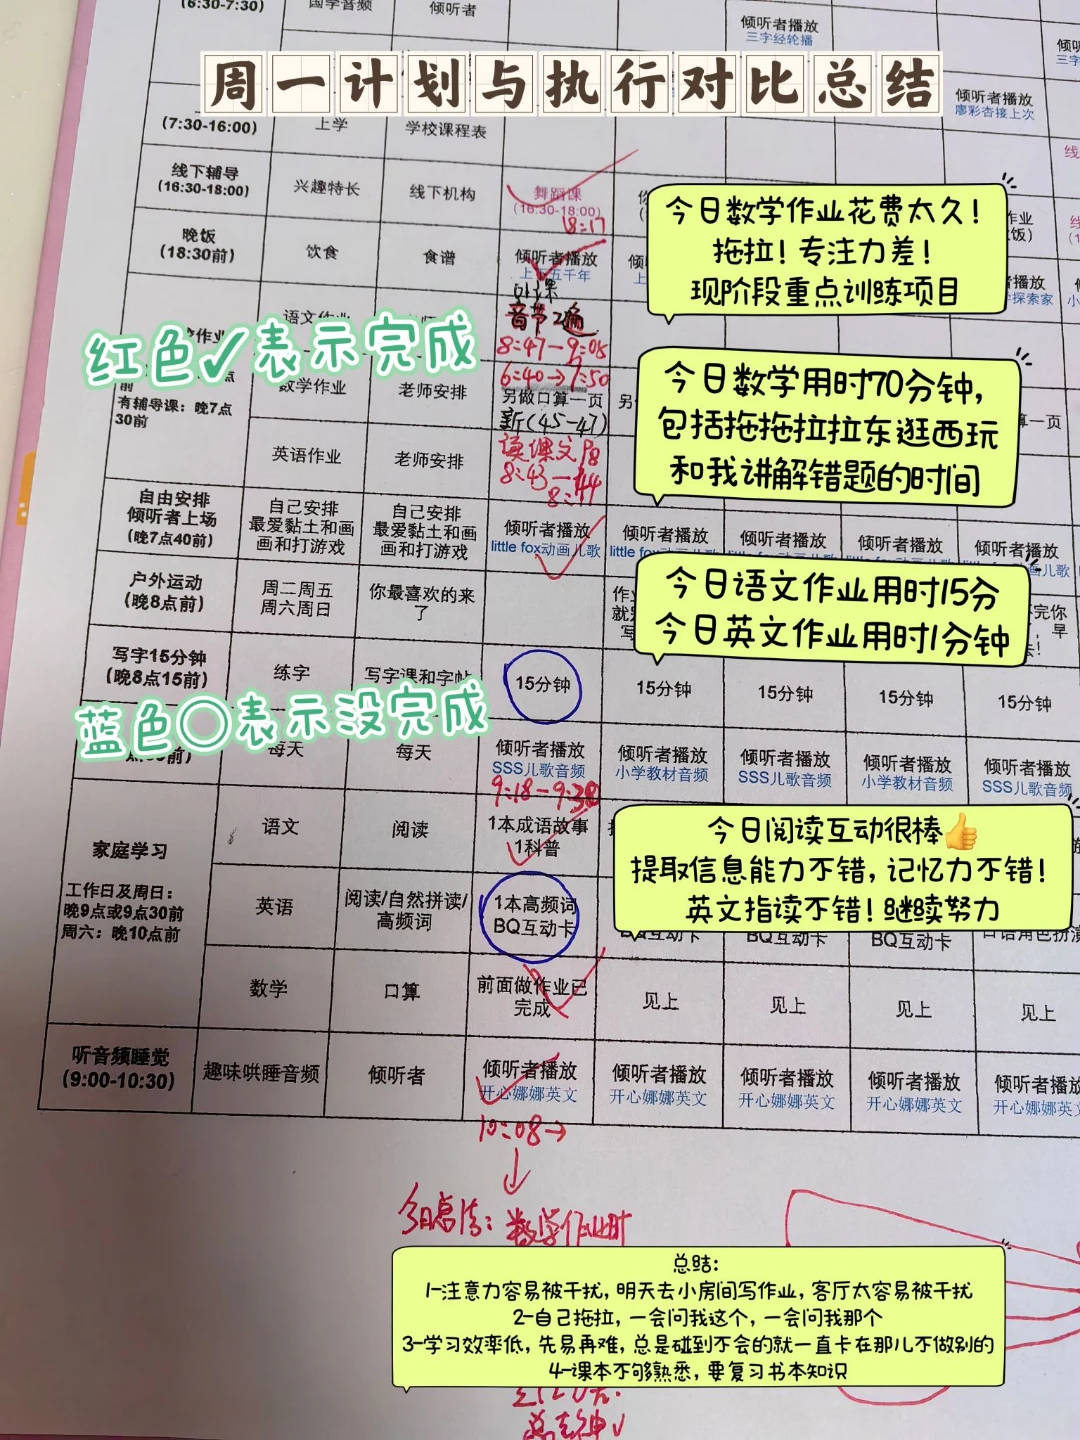 (6:30-7:30)
国学音频
倾听者
倾听者播放
三字经轮播
周一计划与执行对比总结
倾听者播放
廖彩杏接上次
(7:30-16:00)
上学
学校课程表
线下辅导
(16:30-18:00)
兴趣特长
线下机构
舞蹈课
(16:30-18:00)
18:17
今日数学作业花费太久!
拖拉! 专注力差!
现阶段重点训练项目
晚饭
(18:30前)
饮食
食谱
倾听者播放
上下五千年
语文作业
音节2遍
8:47-9:05
红色✓表示完成
6:40→7:50
数学作业
老师安排
另做口算一页
新(45-47)
有辅导课:晚7点
30前
今日数学用时70分钟,
包括拖拖拉拉东逛西玩
和我讲解错题的时间
英语作业
老师安排
读课文P8
8:43-
8:44
自由安排
倾听者上场
(晚7点40前)
自己安排
最爱黏土和画
画和打游戏
自己安排
最爱黏土和画
画和打游戏
倾听者播放
little fox动画儿歌
倾听者播放
倾听者播放
倾听者播放
倾听者播放
户外运动
(晚8点前)
周二周五
周六周日
你最喜欢的来
了
今日语文作业用时15分
今日英文作业用时1分钟
写字15分钟
(晚8点15前)
练字
写字课和字帖
15分钟
15分钟
15分钟
15分钟
15分钟
蓝色○表示没完成
每天
每天
倾听者播放
SSS儿歌音频
倾听者播放
小学教材音频
倾听者播放
SSS儿歌音频
倾听者播放
小学教材音频
倾听者播放
SSS儿歌音频
9:18-9:38
家庭学习
工作日及周日:
晚9点或9点30前
周六:晚10点前
语文
阅读
1本成语故事
1科普
今日阅读互动很棒👍
提取信息能力不错,记忆力不错!
英文指读不错!继续努力
英语
阅读/自然拼读/
高频词
1本高频词
BQ互动卡
BQ互动卡
BQ互动卡
BQ互动卡
口语角色扮演
数学
口算
前面做作业已
完成
见上
见上
见上
见上
听音频睡觉
(9:00-10:30)
趣味哄睡音频
倾听者
倾听者播放
开心娜娜英文
倾听者播放
开心娜娜英文
倾听者播放
开心娜娜英文
倾听者播放
开心娜娜英文
倾听者播放
开心娜娜英文
10:08→
今日总结:数学作业时
总结:
1-注意力容易被干扰,明天去小房间写作业,客厅太容易被干扰
2-自己拖拉,一会问我这个,一会问我那个
3-学习效率低,先易再难,总是碰到不会的就一直卡在那儿不做别的
4-课本不够熟悉,要复习书本知识